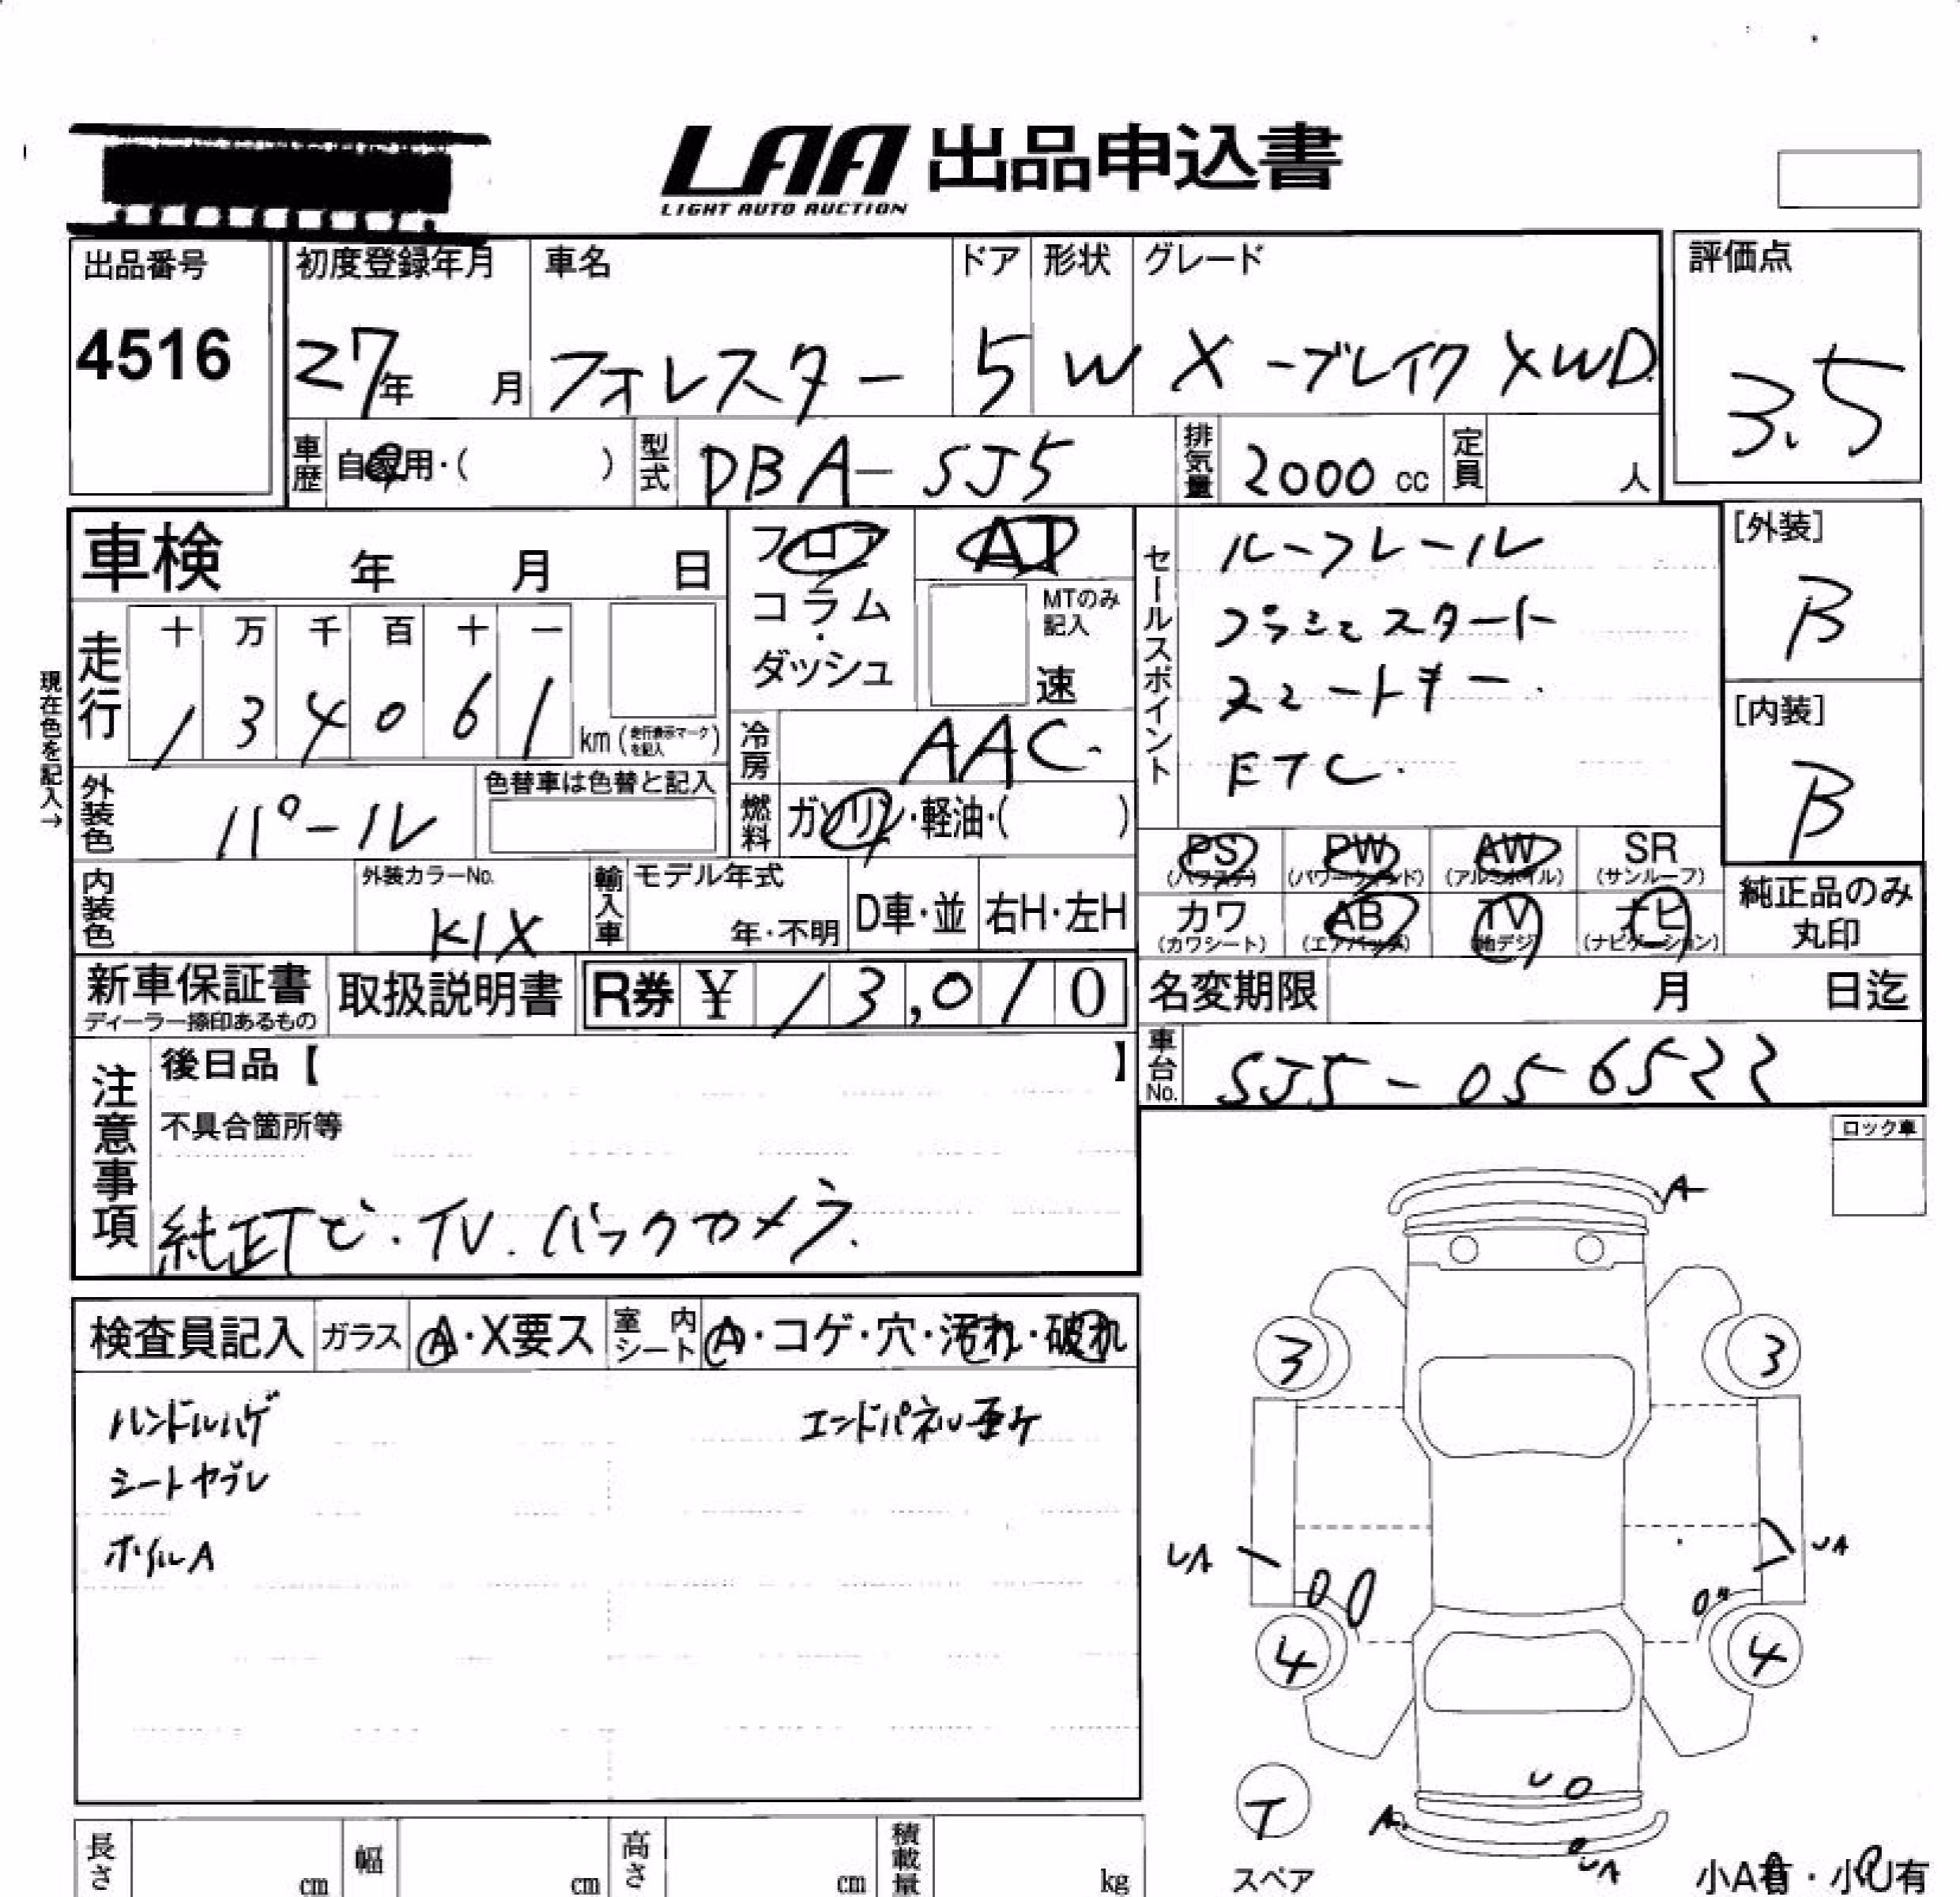 LAA 出品申込書
LIGHT AUTO AUCTION
出品番号
4516
初度登録年月
27年 月
車名
フォレスター
ドア
5
形状
W
グレード
X-ブレイク XWD
評価点
3.5
車歴 自家用・( )
型式 DBA-SJ5
排気量 2000 cc
定員 人
車検 年 月 日
フロア
コラム
・
ダッシュ
AT
MTのみ
記入
速
セールスポイント
ルーフレール
プッシュスタート
スマートキー.
ETC.
[外装]
B
[内装]
B
現在色を記入→
走行
十 万 千 百 十 一
1 3 4 0 6 1
km (走行表示マークを記入)
冷房 AAC.
外装色 パール
色替車は色替と記入
燃料 ガソリン・軽油・( )
PS (パワステ)
PW (パワーウィンド)
AW (アルミホイル)
SR (サンルーフ)
カワ (カワシート)
AB (エアバッグ)
TV (地デジ)
ナビ (ナビゲーション)
純正品のみ
丸印
内装色
外装カラーNo.
K1X
輸入車
モデル年式
年・不明
D車・並
右H・左H
新車保証書
ディーラー捺印あるもの
取扱説明書
R券 ¥ 13,010
名変期限 月 日迄
車台No. SJ5-056522
注意事項
後日品【 】
不具合箇所等
純正ナビ・TV.バックカメラ.
ロック車
検査員記入
ガラス A・X要ス
室内シート A・コゲ・穴・汚れ・破れ
ハンドルハゲ
エンドパネル歪ケ
シートヤブレ
ホイルA
A
3
3
UA
UA
4
4
U
A
UA
T
スペア
小A有・小U有
長さ cm
幅 cm
高さ cm
積載量 kg